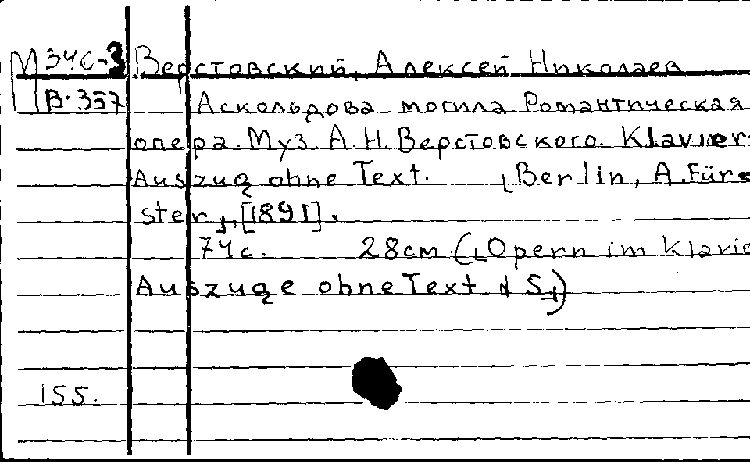 М ЭЧС-3 Верстовский, Алексей Николаев
В-357 Аскольдова могила Романтическая
опера. Муз. А. Н. Верстовского. Klavier-
Auszug ohne Text. [Berlin, A. Fürs
ter], [1891].
74 с. 28 см ([Opern im Klavie
Auszuge ohne Text
155.